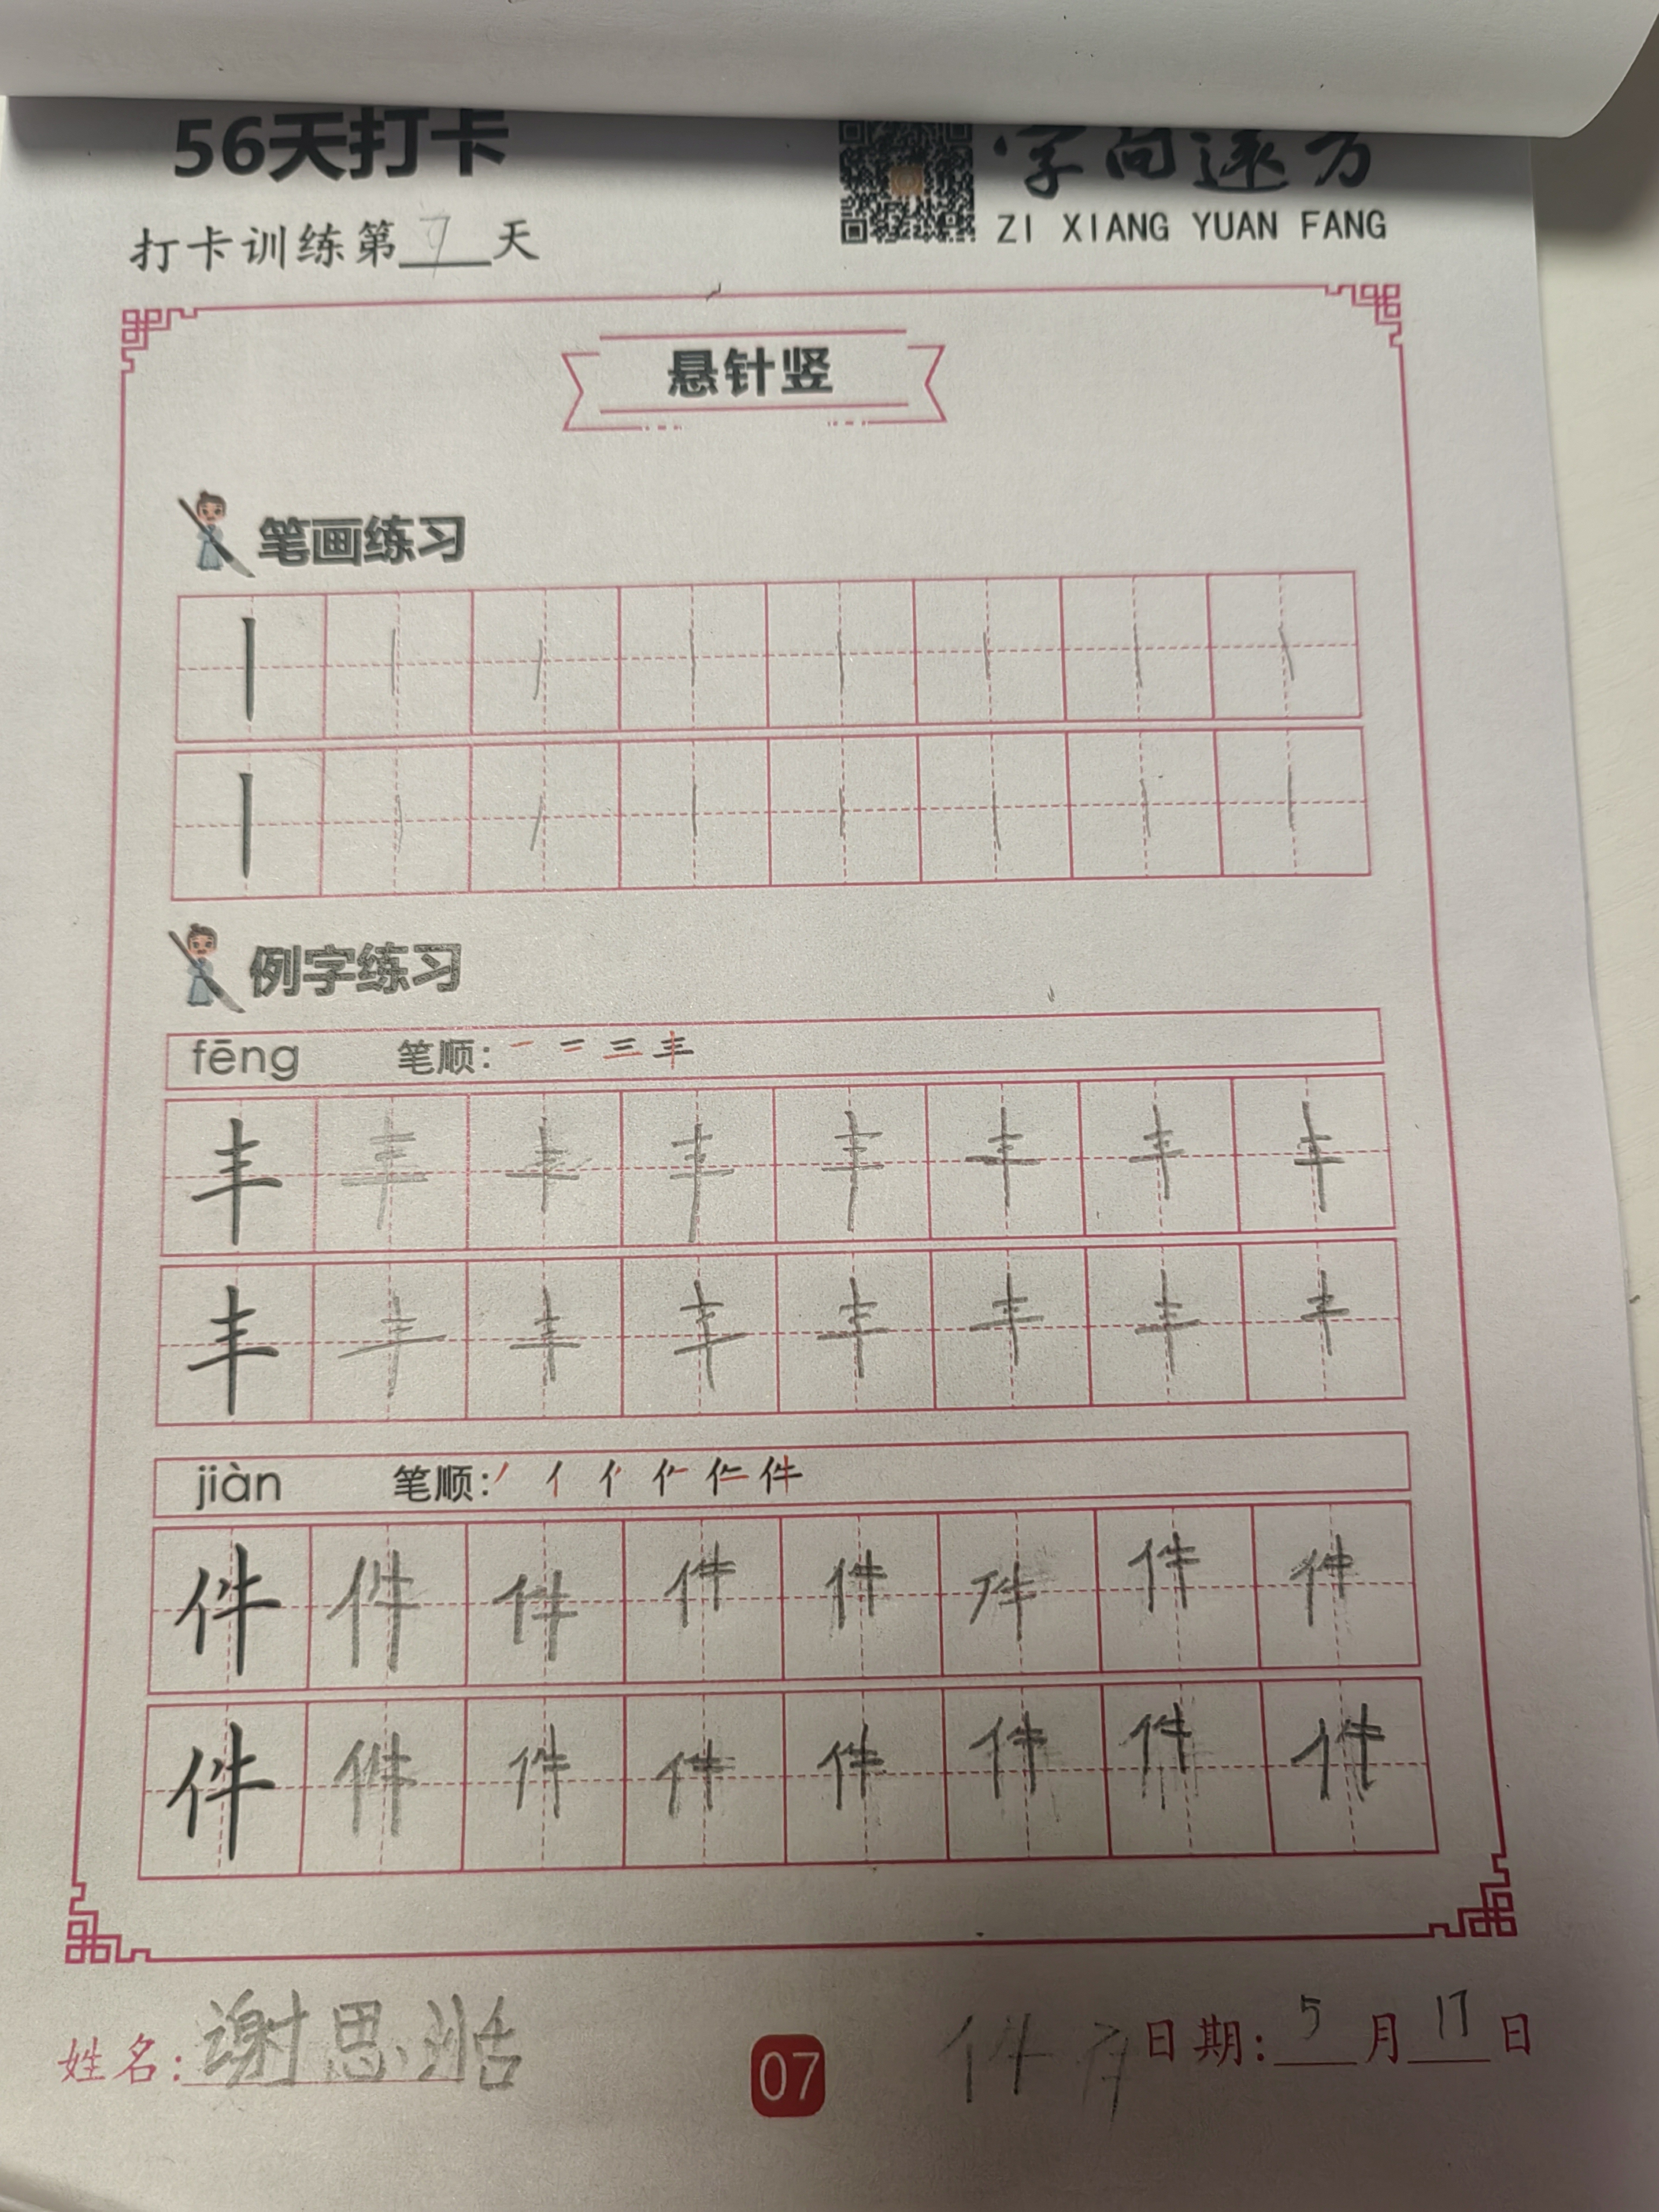 56天打卡
字向远方
ZI XIANG YUAN FANG
打卡训练第7天
悬针竖
笔画练习
丨 丨 丨 丨 丨 丨 丨 丨
丨 丨 丨 丨 丨 丨 丨 丨
例字练习
fēng 笔顺: 一 二 三 丰
丰 丰 丰 丰 丰 丰 丰 丰
丰 丰 丰 丰 丰 丰 丰 丰
jiàn 笔顺: 件
件 件 件 件 件 件 件 件
件 件 件 件 件 件 件 件
姓名: 谢思
07
件
日期: 5月17日